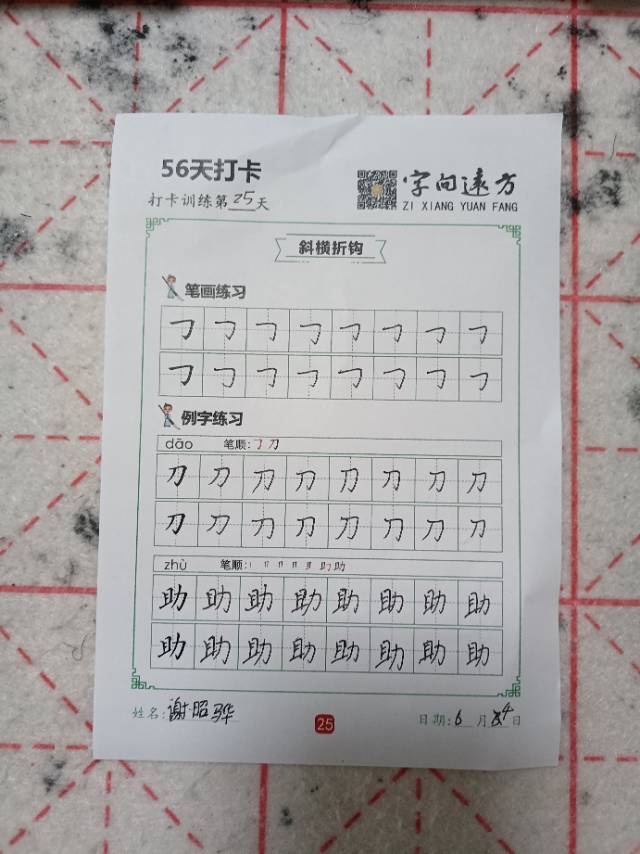 56天打卡
打卡训练第25天
字向远方
ZI XIANG YUAN FANG
斜横折钩
笔画练习
㇆ ㇆ ㇆ ㇆ ㇆ ㇆ ㇆ ㇆
㇆ ㇆ ㇆ ㇆ ㇆ ㇆ ㇆ ㇆
例字练习
dāo 笔顺:㇆ 刀
刀 刀 刀 刀 刀 刀 刀 刀
刀 刀 刀 刀 刀 刀 刀 刀
zhù 笔顺:
助 助 助 助 助 助 助 助
助 助 助 助 助 助 助 助
姓名:谢昭骅 25 日期:6月24日